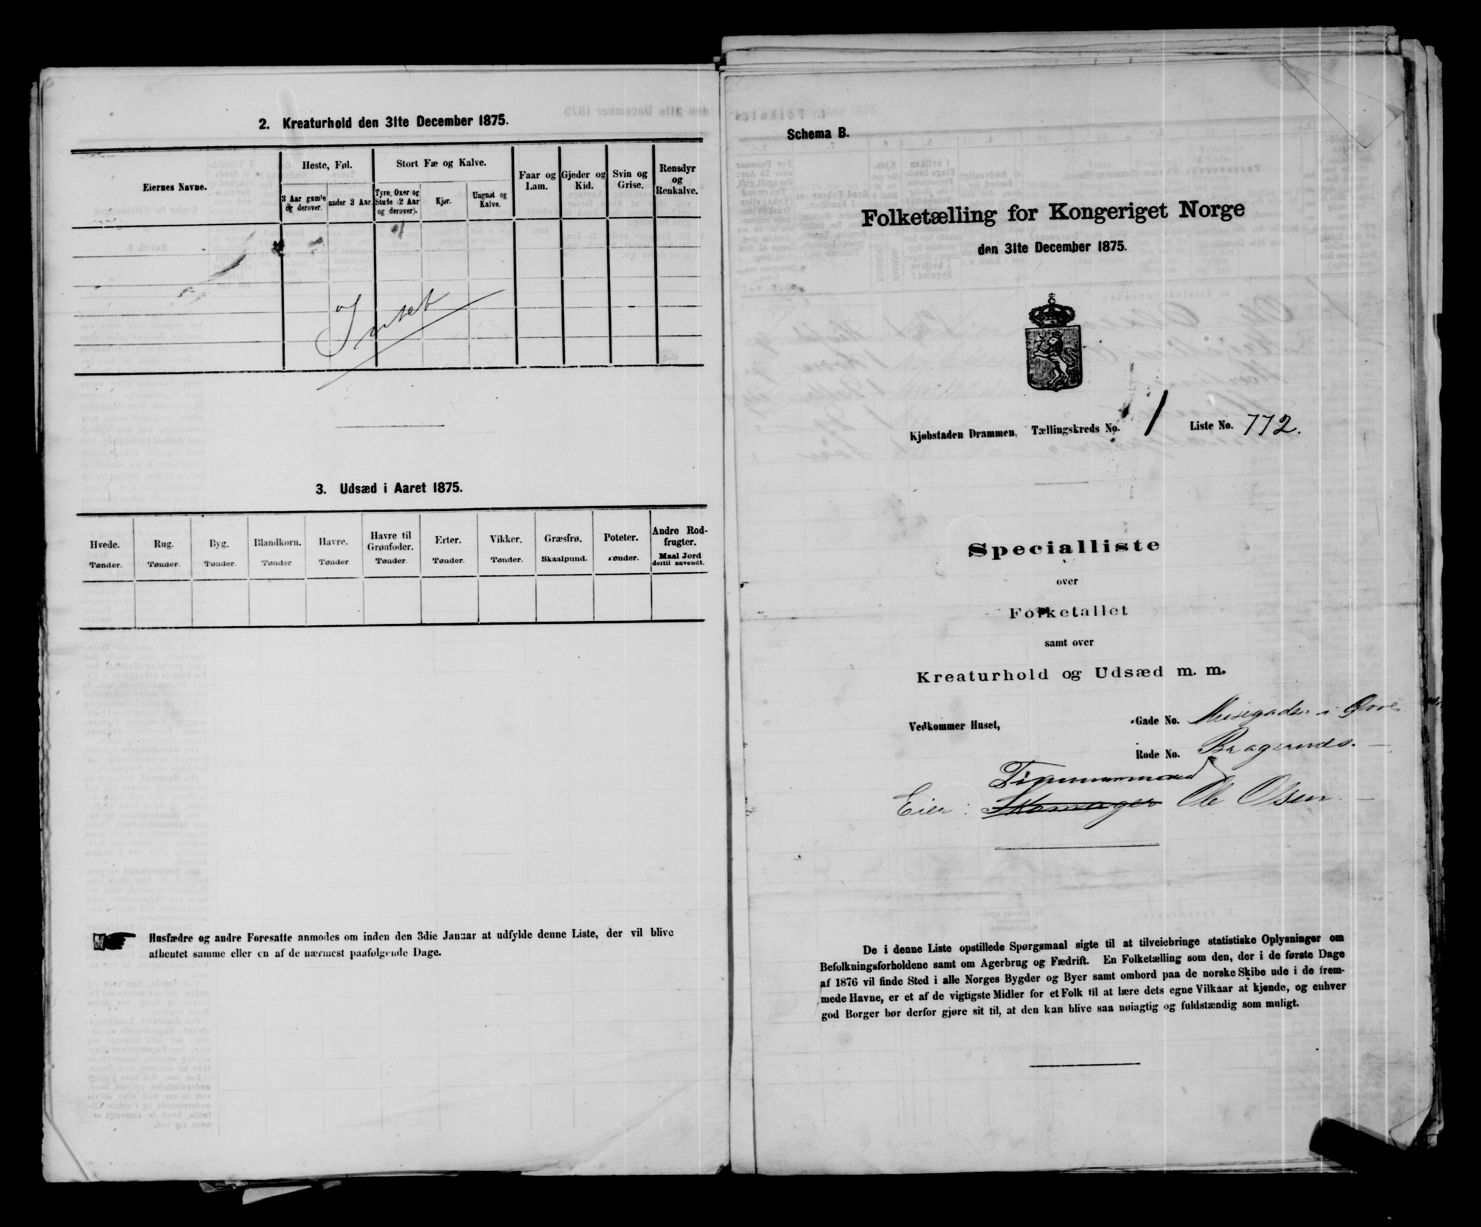 2. Kreaturhold den 31te December 1875.
Eiernes Navne.
Heste, Føl.
3 Aar gamle og derover.
under 3 Aar.
Stort Fæ og Kalve.
Tyre, Oxer og Stude (2 Aar og derover).
Kjør.
Ungnøt og Kalve.
Faar og Lam.
Gjeder og Kid.
Svin og Grise.
Rensdyr og Renkalve.
Intet
3. Udsæd i Aaret 1875.
Hvede. Tønder.
Rug. Tønder.
Byg. Tønder.
Blandkorn. Tønder
Havre. Tønder
Havre til Grønfoder. Tønder.
Erter. Tønder.
Vikker. Tønder.
Græsfrø. Skaalpund.
Poteter. Tønder.
Andre Rodfrugter. Maal Jord dertil anvendt.
Husfædre og andre Foresatte anmodes om inden den 3die Januar at udfylde denne Liste, der vil blive
afhentet samme eller en af de nærmest paafølgende Dage.
Schema B.
Folketælling for Kongeriget Norge
den 31te December 1875.
Kjøbstaden Drammen, Tællingskreds No. 1 Liste No. 772.
Specialliste
over
Folketallet
samt over
Kreaturhold og Udsæd m. m.
Vedkommer Huset, Gade No. i Øvre
Rode No. Bragernes.
Tømmermand
Eier: Skomager Ole Olsen.
De i denne Liste opstillede Spørgsmaal sigte til at tilveiebringe statistiske Oplysninger om
Befolkningsforholdene samt om Agerbrug og Fædrift. En Folketælling som den, der i de første Dage
af 1876 vil finde Sted i alle Norges Bygder og Byer samt ombord paa de norske Skibe ude i de frem-
mede Havne, er et af de vigtigste Midler for et Folk til at lære dets egne Vilkaar at kjende, og enhver
god Borger bør derfor gjøre sit til, at den kan blive saa nøiagtig og fuldstændig som muligt.